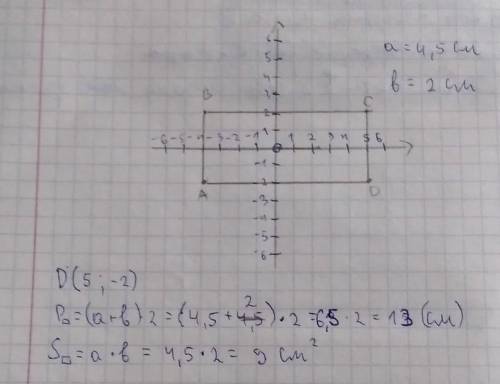 6
5
4
3
2
1
a = 4,5 см
в = 2 см
B
C
-6 -5 -4 -3 -2 -1 0 1 2 3 4 5 6
-1
-2
-3
-4
-5
-6
A
D
D (5 ; -2)
P▭ = (a+в)·2 = (4,5 + 2)·2 = 6,5·2 = 13 (см)
S▭ = a·в = 4,5·2 = 9 см²